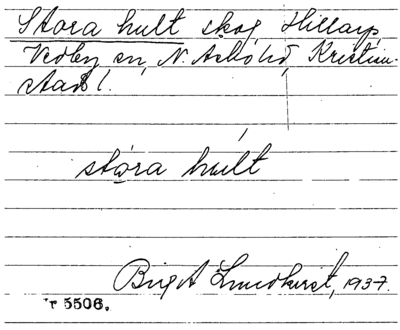 Stora hult skog, Hillarp
Vedby sn, N. Åsbo hd, Kristian-
stad l.
stóra hult
Birgit Lundkvist, 1937.
5506.